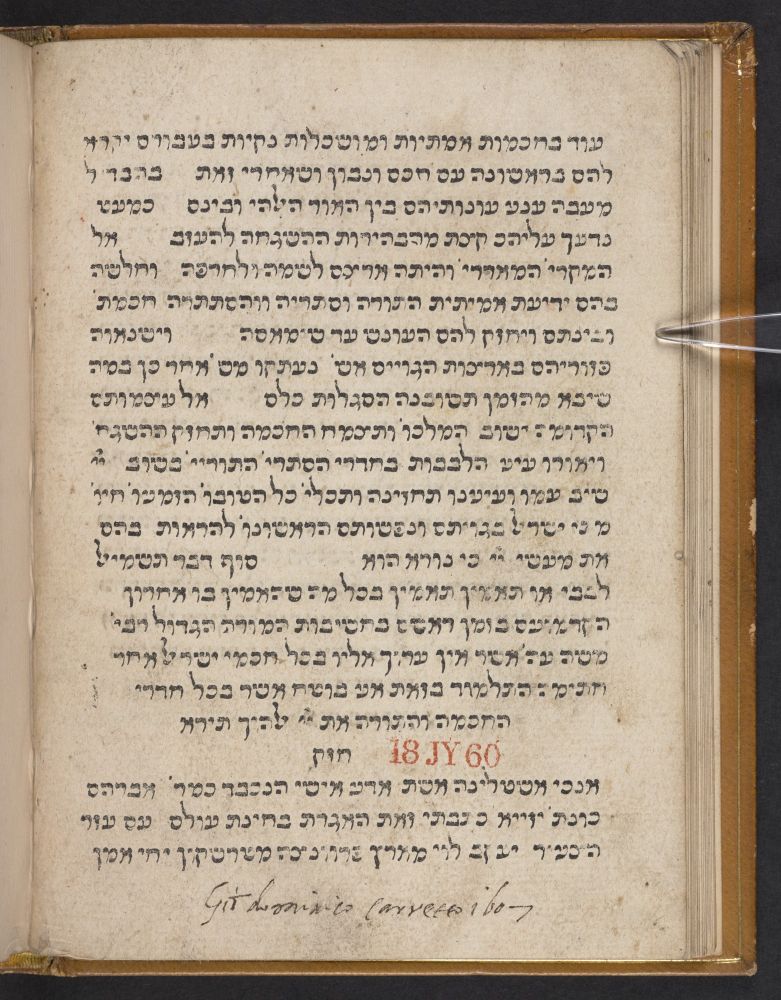 עוד בחכמות אמתיות ומושכלות נקיות בעבורים יקרא
להם בראשונה עם חכם ונבון ושאחרי זאת
מעבה ענע עונותיהם בין האור האלהי ובינם כמעט
נדעך עליהם מהבהירות ההשגחה להעזב אל
המקרי' והיתה אריכם לשמה ולחרפה וחלשה
בהם ידיעת אמיתית התורה וסתריה ווהסתתרה חכמת'
ובינתם ויחזק להם העונש עד ש'מאסה וישנאוה
בדוריהם באריכות הגוייס אש' נעתקו מש' אחר כן במה
שיבא מהזמן תשובנה הסגלות כלם אל עיכמותם
הקדומה ישוב המלכו' ותיכמח החכמה ותחזק ההשגח'
ויאורו עיע הלבבות בחדרי הסתרי' התוריי' בשוב יי
שיב עמו ועיענו תחזינה ותכלי' כל הטובו'
מבני ישראל בגויתם ונפשותם הראשונו' להראות בהם
את מעשי יי כי נורא הוא סוף דבר תשמיל
לבבי או תאמין תאמין בכל מה שהאמין בו אחרון
בזמן ראשם בחשיבות המורה הגדול רבי'
משה ע'ה אשר אין ערוך אליו בכל חכמי ישראל אחר
חתימה התלמוד בזאת אני בוטח אשר בכל חדרי
החכמה והתורה את יי אלהיך תירא
18 JY 60 חזק
אנכי אשטלינה אשת אדני אישי הנכבד כמר' אברהם
כונת' יזייא כתבתי זאת האגרת בחינת עולם עם עזר
הצעיר יעקב לוי מארץ פרווניצה מטרשקון יחי אמן
Gio domínico Carretto 1607